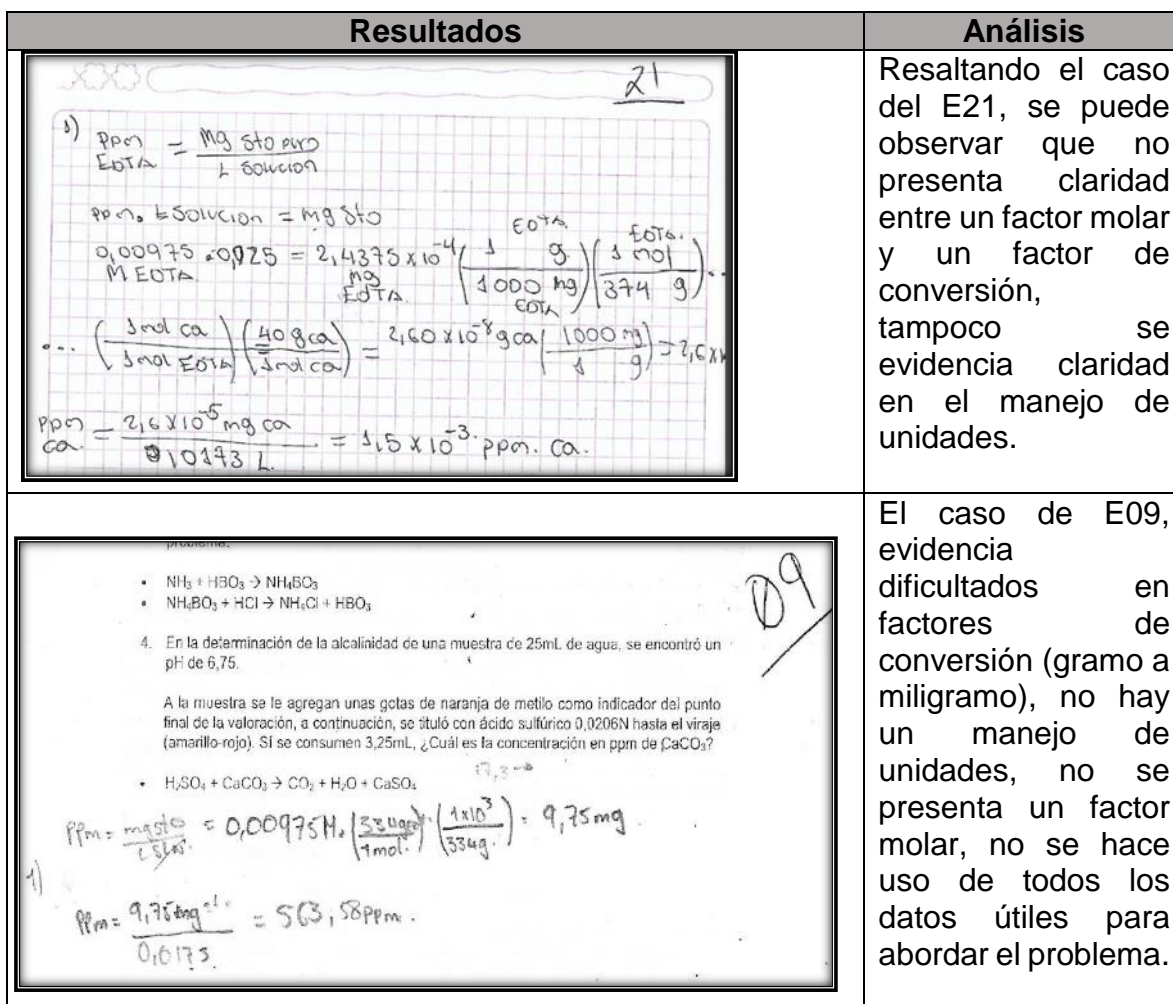 Resultados
Análisis
21
1) ppm EDTA = Mg sto puro / L solucion
ppm . L solucion = mg sto
0,00975 . 0,025 = 2,4375 x 10⁻⁴ (1 g / 1000 mg) (1 mol / 374 g) ...
M EDTA mg EDTA EDTA EDTA EDTA
... (1 mol ca / 1 mol EDTA) (40 g ca / 1 mol ca) = 2,60 x 10⁻⁸ g ca (1000 mg / 1 g) = 2,6 x
ppm ca. = 2,6 x 10⁻⁵ mg ca / 0,0173 L = 1,5 x 10⁻³ ppm. ca.
Resaltando el caso
del E21, se puede
observar que no
presenta claridad
entre un factor molar
y un factor de
conversión,
tampoco se
evidencia claridad
en el manejo de
unidades.
problema.
• NH₃ + HBO₃ → NH₄BO₃
• NH₄BO₃ + HCl → NH₄Cl + HBO₃
09
4. En la determinación de la alcalinidad de una muestra de 25mL de agua, se encontró un
pH de 6,75.
A la muestra se le agregan unas gotas de naranja de metilo como indicador del punto
final de la valoración, a continuación, se tituló con ácido sulfúrico 0,0206N hasta el viraje
(amarillo-rojo). Sí se consumen 3,25mL, ¿Cuál es la concentración en ppm de CaCO₃?
17,3
• H₂SO₄ + CaCO₃ → CO₂ + H₂O + CaSO₄
ppm = mg sto / L sln = 0,00975M. (334 g / 1 mol) . (1x10³ / 334 g.) = 9,75 mg
1)
ppm = 9,75 mg / 0,0173 = 563,58 ppm.
El caso de E09,
evidencia
dificultados en
factores de
conversión (gramo a
miligramo), no hay
un manejo de
unidades, no se
presenta un factor
molar, no se hace
uso de todos los
datos útiles para
abordar el problema.